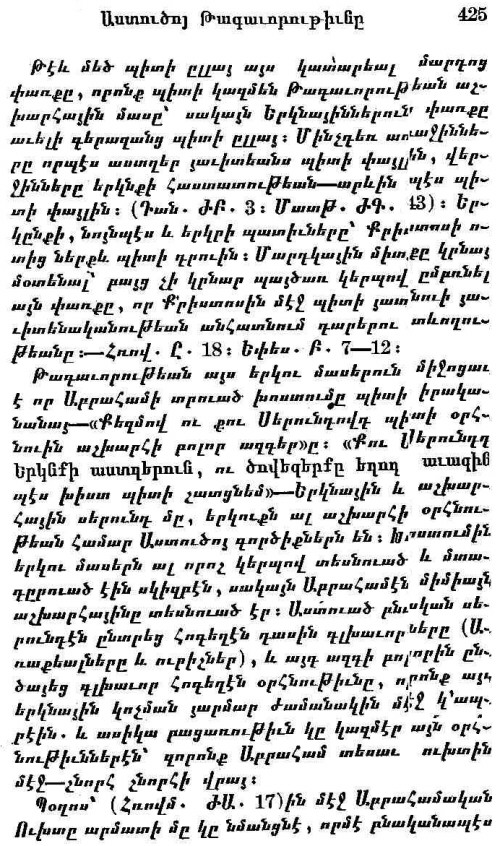 Աստուծոյ Թագաւորութիւնը 425
Թէև մեծ պիտի ըլլայ այս կատարեալ մարդոց
փառքը, որոնք պիտի կազմեն Թագաւորութեան աշ-
խարհային մասը՝ սակայն Երկնայիններուն փառքը
աւելի գերազանց պիտի ըլլայ։ Մինչդեռ առաջիննե-
րը որպէս աստղեր յաւիտեանս պիտի փայլին, վեր-
ջինները երկնքի հաստատութեան—արևին պէս պի-
տի փայլին։ (Դան. ԺԲ. 3։ Մատթ. ԺԳ. 43)։ Եր-
կընքի, նոյնպէս և երկրի պատիւները՝ Քրիստոսի ո-
տից ներքև պիտի դրուին։ Մարդկային միտքը կրնայ
մօտենալ՝ բայց չի կրնար պայծառ կերպով ըմբռնել
այն փառքը, որ Քրիստոսին մէջ պիտի յայտնուի յա-
ւիտենականութեան անհատնում դարերու տևողու-
թեանը։—Հռով. Ը. 18։ Եփես. Բ. 7—12։
Թագաւորութեան այս երկու մասերուն միջոցաւ
է որ Աբրահամի տրուած խոստումը պիտի իրակա-
նանայ—«Քեզմով ու քու Սերունդովդ պիտի օրհ-
նուին աշխարհի բոլոր ազգեր»ը։ «Քու Սերունդդ
Երկնքի աստղերուն, ու ծովեզերքը եղող աւազին
պէս խիստ պիտի շատցնեմ»—Երկնային և աշխար-
հային սերունդ մը, երկուքն ալ աշխարհի օրհնու-
թեան համար Աստուծոյ գործիքներն են։ Խոստումին
երկու մասերն ալ որոշ կերպով տեսնուած և մտա-
դըրուած էին սկիզբէն, սակայն Աբրահամէն միմիայն
աշխարհայինը տեսնուած էր։ Աստուած բնական սե-
րունդէն ընտրեց հոգեղէն դասին գլխաւորները (Ա-
ռաքեալները և ուրիշներ), և այդ ազգի բոլորին ըն-
ծայեց գլխաւոր հոգեղէն օրհնութիւնը, որոնք այս
երկնային կոչման յարմար ժամանակին մէջ կ՚ապ-
րէին. և ասիկա բացառութիւն կը կազմէր այն օրհ-
նութիւններէն՝ զորոնք Աբրահամ տեսաւ ուխտին
մէջ—շնորհ շնորհի վրայ։
Պօղոս՝ (Հռովմ. ԺԱ. 17)ին մէջ Աբրահամական
Ուխտը արմատի մը կը նմանցնէ, որմէ բնականապէս